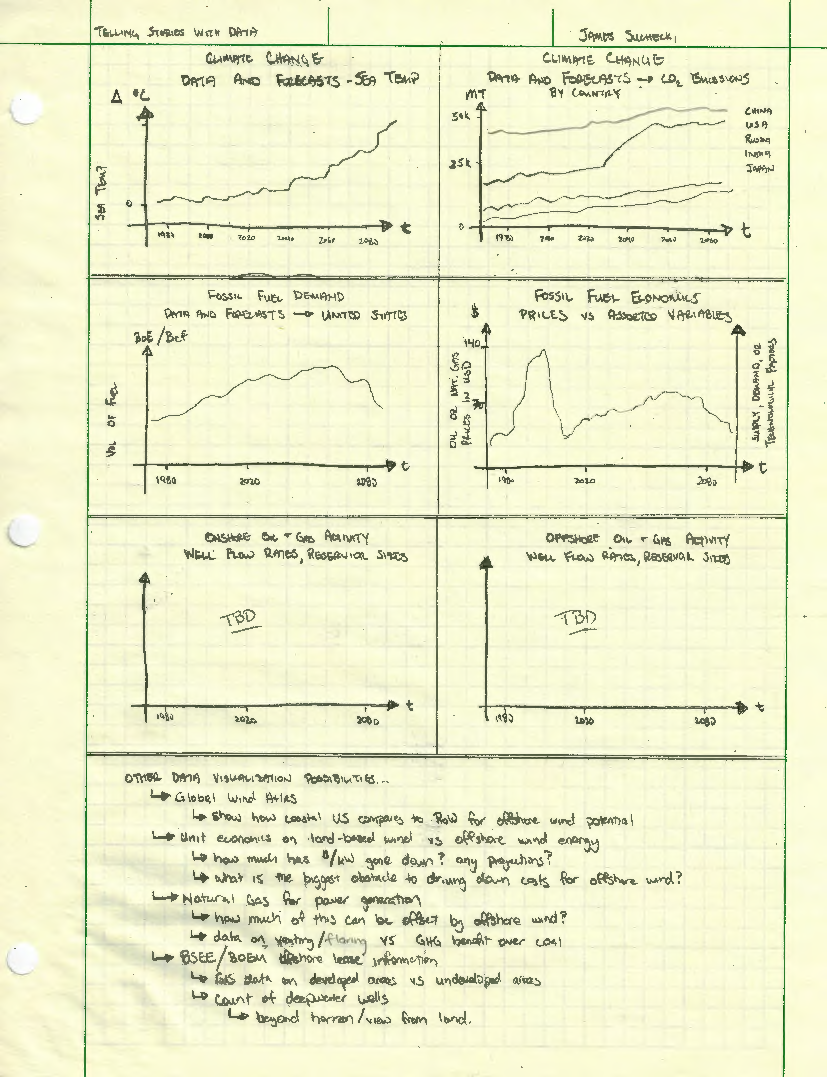 TELLING STORIES WITH DATA
JAMES SUCHECKI
CLIMATE CHANGE
DATA AND FORECASTS - SEA TEMP
Δ °C
SEA TEMP
0
1980 2000 2020 2040 2060 2080
t
CLIMATE CHANGE
DATA AND FORECASTS → CO2 EMISSIONS
BY COUNTRY
MT
50k
25k
0
CHINA
USA
RUSSIA
INDIA
JAPAN
1980 2000 2020 2040 2060 2080
t
FOSSIL FUEL DEMAND
DATA AND FORECASTS → UNITED STATES
BOE/Bcf
VOL OF FUEL
1980 2020 2080
t
FOSSIL FUEL ECONOMICS
PRICES VS ASSORTED VARIABLES
$
140
70
OIL OR NAT. GAS
PRICES IN USD
SUPPLY, DEMAND, OR
1980 2020 2080
t
ONSHORE OIL + GAS ACTIVITY
WELL FLOW RATES, RESERVIOR SIZES
TBD
1980 2020 2080
t
OFFSHORE OIL + GAS ACTIVITY
WELL FLOW RATES, RESERVOIR SIZES
TBD
1980 2020 2080
t
OTHER DATA VISUALIZATION POSSIBILITIES...
↳ Global Wind Atlas
↳ Show how coastal US compares to RoW for offshore wind potential
↳ Unit economics on land-based wind vs offshore wind energy
↳ how much has $/kW gone down? any projections?
↳ what is the biggest obstacle to driving down costs for offshore wind?
↳ Natural Gas for power generation
↳ how much of this can be offset by offshore wind?
↳ data on venting/flaring vs GHG benefit over coal
↳ BSEE/BOEM offshore lease information
↳ GIS data on developed areas vs undeveloped areas
↳ Count of deepwater wells
↳ beyond horizon/view from land.